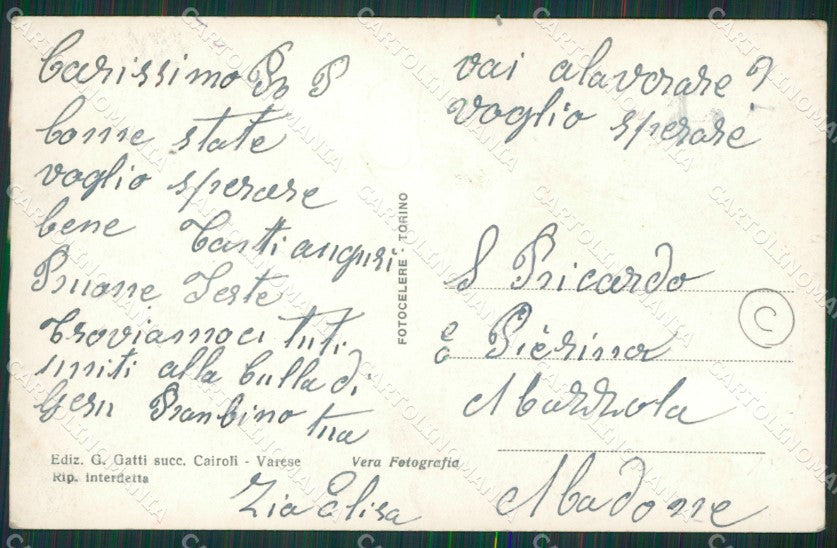 Carissimo
Come state
voglio sperare
bene Tanti anguri
Buone Feste
troviamoci tuti
uniti alla Culla di
Gesu Banbino tua
Zia Elisa
vai alavorare?
voglio sperare
Riccardo
e Pièrina
Mazzola
Madone
FOTOCELERE - TORINO
Ediz. G. Gatti succ. Cairoli - Varese
Vera Fotografia
Rip. Interdetta
C
CARTOLINOMANIA